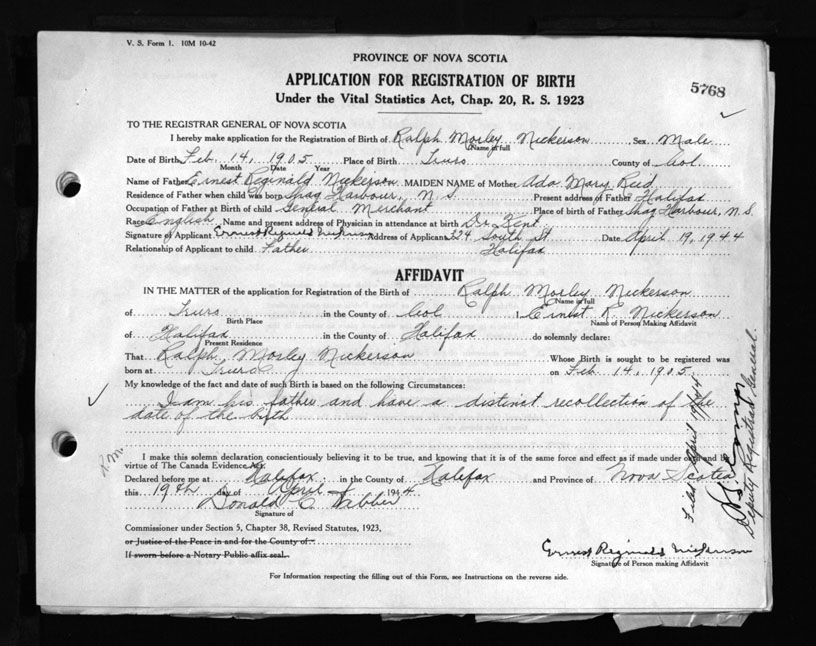 V. S. Form 1. 10M 10-42
PROVINCE OF NOVA SCOTIA
APPLICATION FOR REGISTRATION OF BIRTH
5768
Under the Vital Statistics Act, Chap. 20, R. S. 1923
TO THE REGISTRAR GENERAL OF NOVA SCOTIA
I hereby make application for the Registration of Birth of Ralph Morley Nickerson Sex Male
Name in full
Date of Birth Feb. 14, 1905 Place of Birth Truro County of Col.
Month Date Year
Name of Father Ernest Reginald Nickerson MAIDEN NAME of Mother Ada Mary Reid
Residence of Father when child was born Shag Harbour, N. S. Present address of Father Halifax
Occupation of Father at Birth of child General Merchant Place of birth of Father Shag Harbour, N.S.
Race English Name and present address of Physician in attendance at birth Dr. Kent
Signature of Applicant Ernest Reginald Nickerson Address of Applicant 224 South St Date April 19, 1944
Relationship of Applicant to child Father Halifax
AFFIDAVIT
IN THE MATTER of the application for Registration of the Birth of Ralph Morley Nickerson
Name in full
of Truro in the County of Col I Ernest R. Nickerson
Birth Place Name of Person Making Affidavit
of Halifax in the County of Halifax do solemnly declare:
Present Residence
That Ralph Morley Nickerson Whose Birth is sought to be registered was
born at Truro on Feb. 14, 1905.
My knowledge of the fact and date of such Birth is based on the following Circumstances:
I am his father and have a distinct recollection of the
date of the birth
I make this solemn declaration conscientiously believing it to be true, and knowing that it is of the same force and effect as if made under oath and by
virtue of The Canada Evidence Act.
Declared before me at Halifax in the County of Halifax and Province of Nova Scotia
this 19th day of April 1944
Donald C. Webber
Signature of
Commissioner under Section 5, Chapter 38, Revised Statutes, 1923,
or Justice of the Peace in and for the County of
If sworn before a Notary Public affix seal.
Ernest Reginald Nickerson
Signature of Person making Affidavit
For Information respecting the filling out of this Form, see Instructions on the reverse side.
Filed April 19/44
Deputy Registrar General